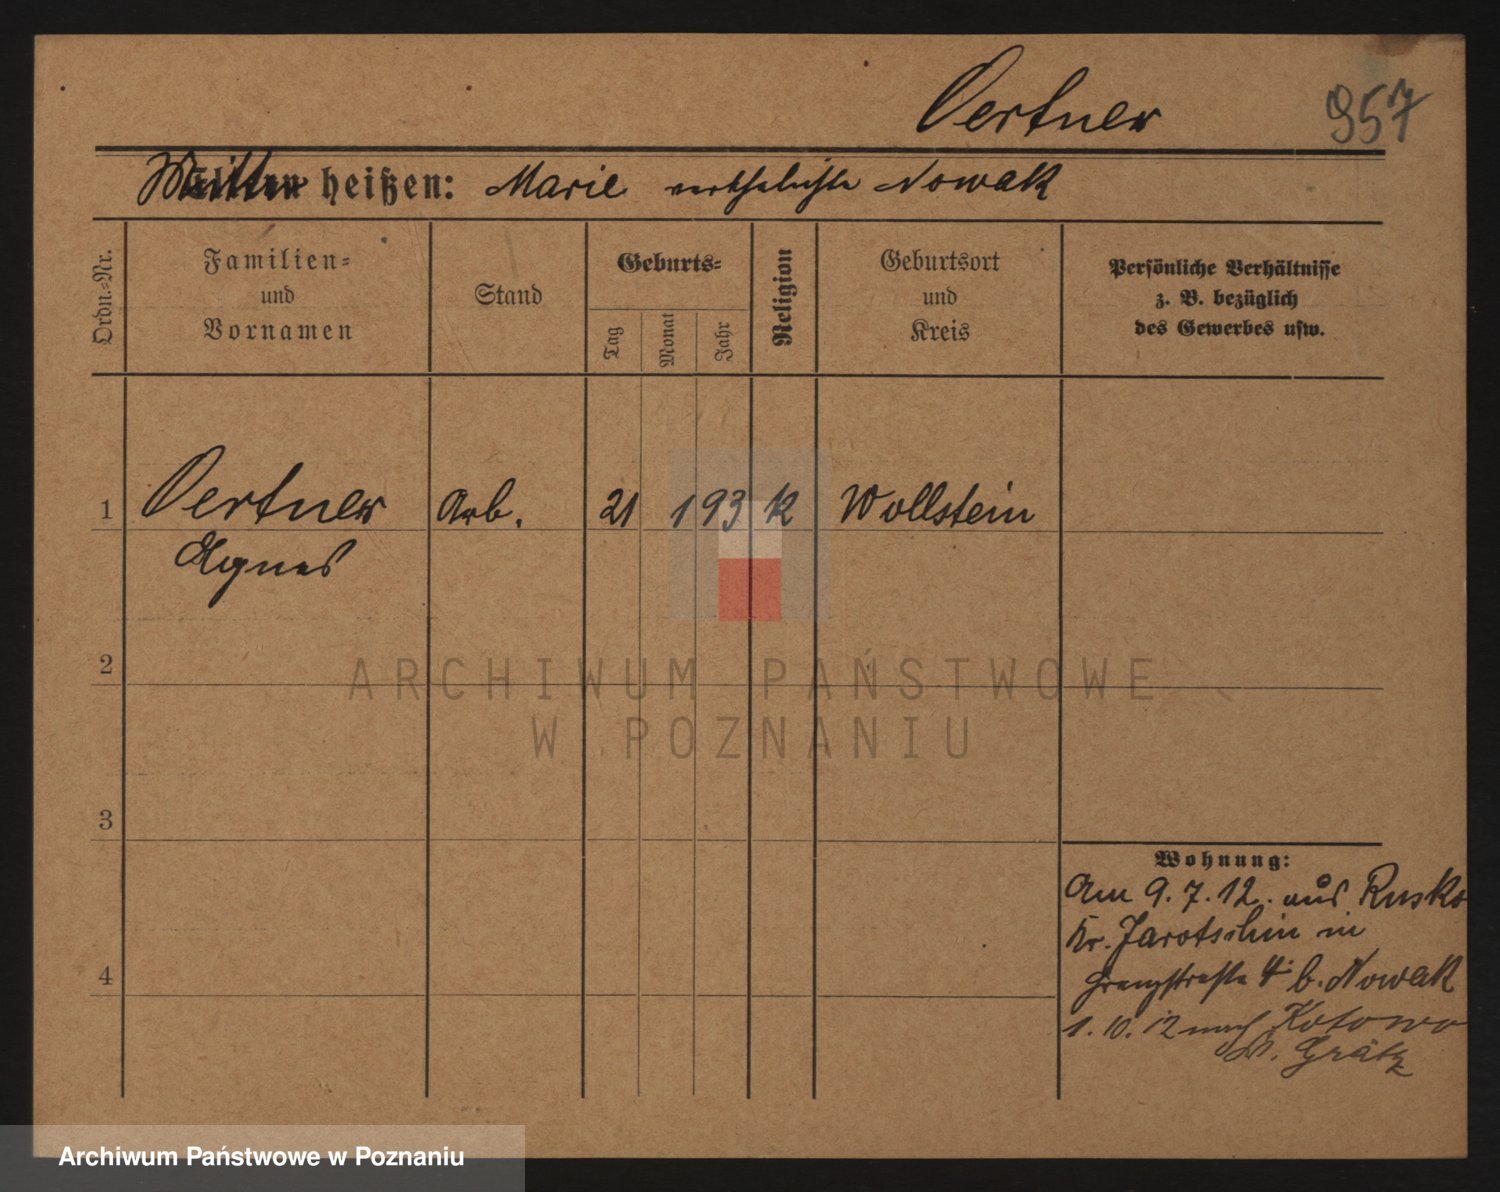 Oertner
957
Mutter heißen: Marie verehelichte Nowak
Ordn.-Nr.
Familien-
und
Vornamen
Stand
Geburts-
Tag
Monat
Jahr
Religion
Geburtsort
und
Kreis
Persönliche Verhältnisse
z. B. bezüglich
des Gewerbes usw.
1 Oertner Arb. 21 1 93 K Wollstein
Agnes
2
3
4
Wohnung:
Am 9.7.12. aus Rusko
Kr. Jarotschin in
Grenzstraße 4 b. Nowak
1.10.12 nach Kotowo
Grätz
ARCHIWUM PAŃSTWOWE
W POZNANIU
Archiwum Państwowe w Poznaniu